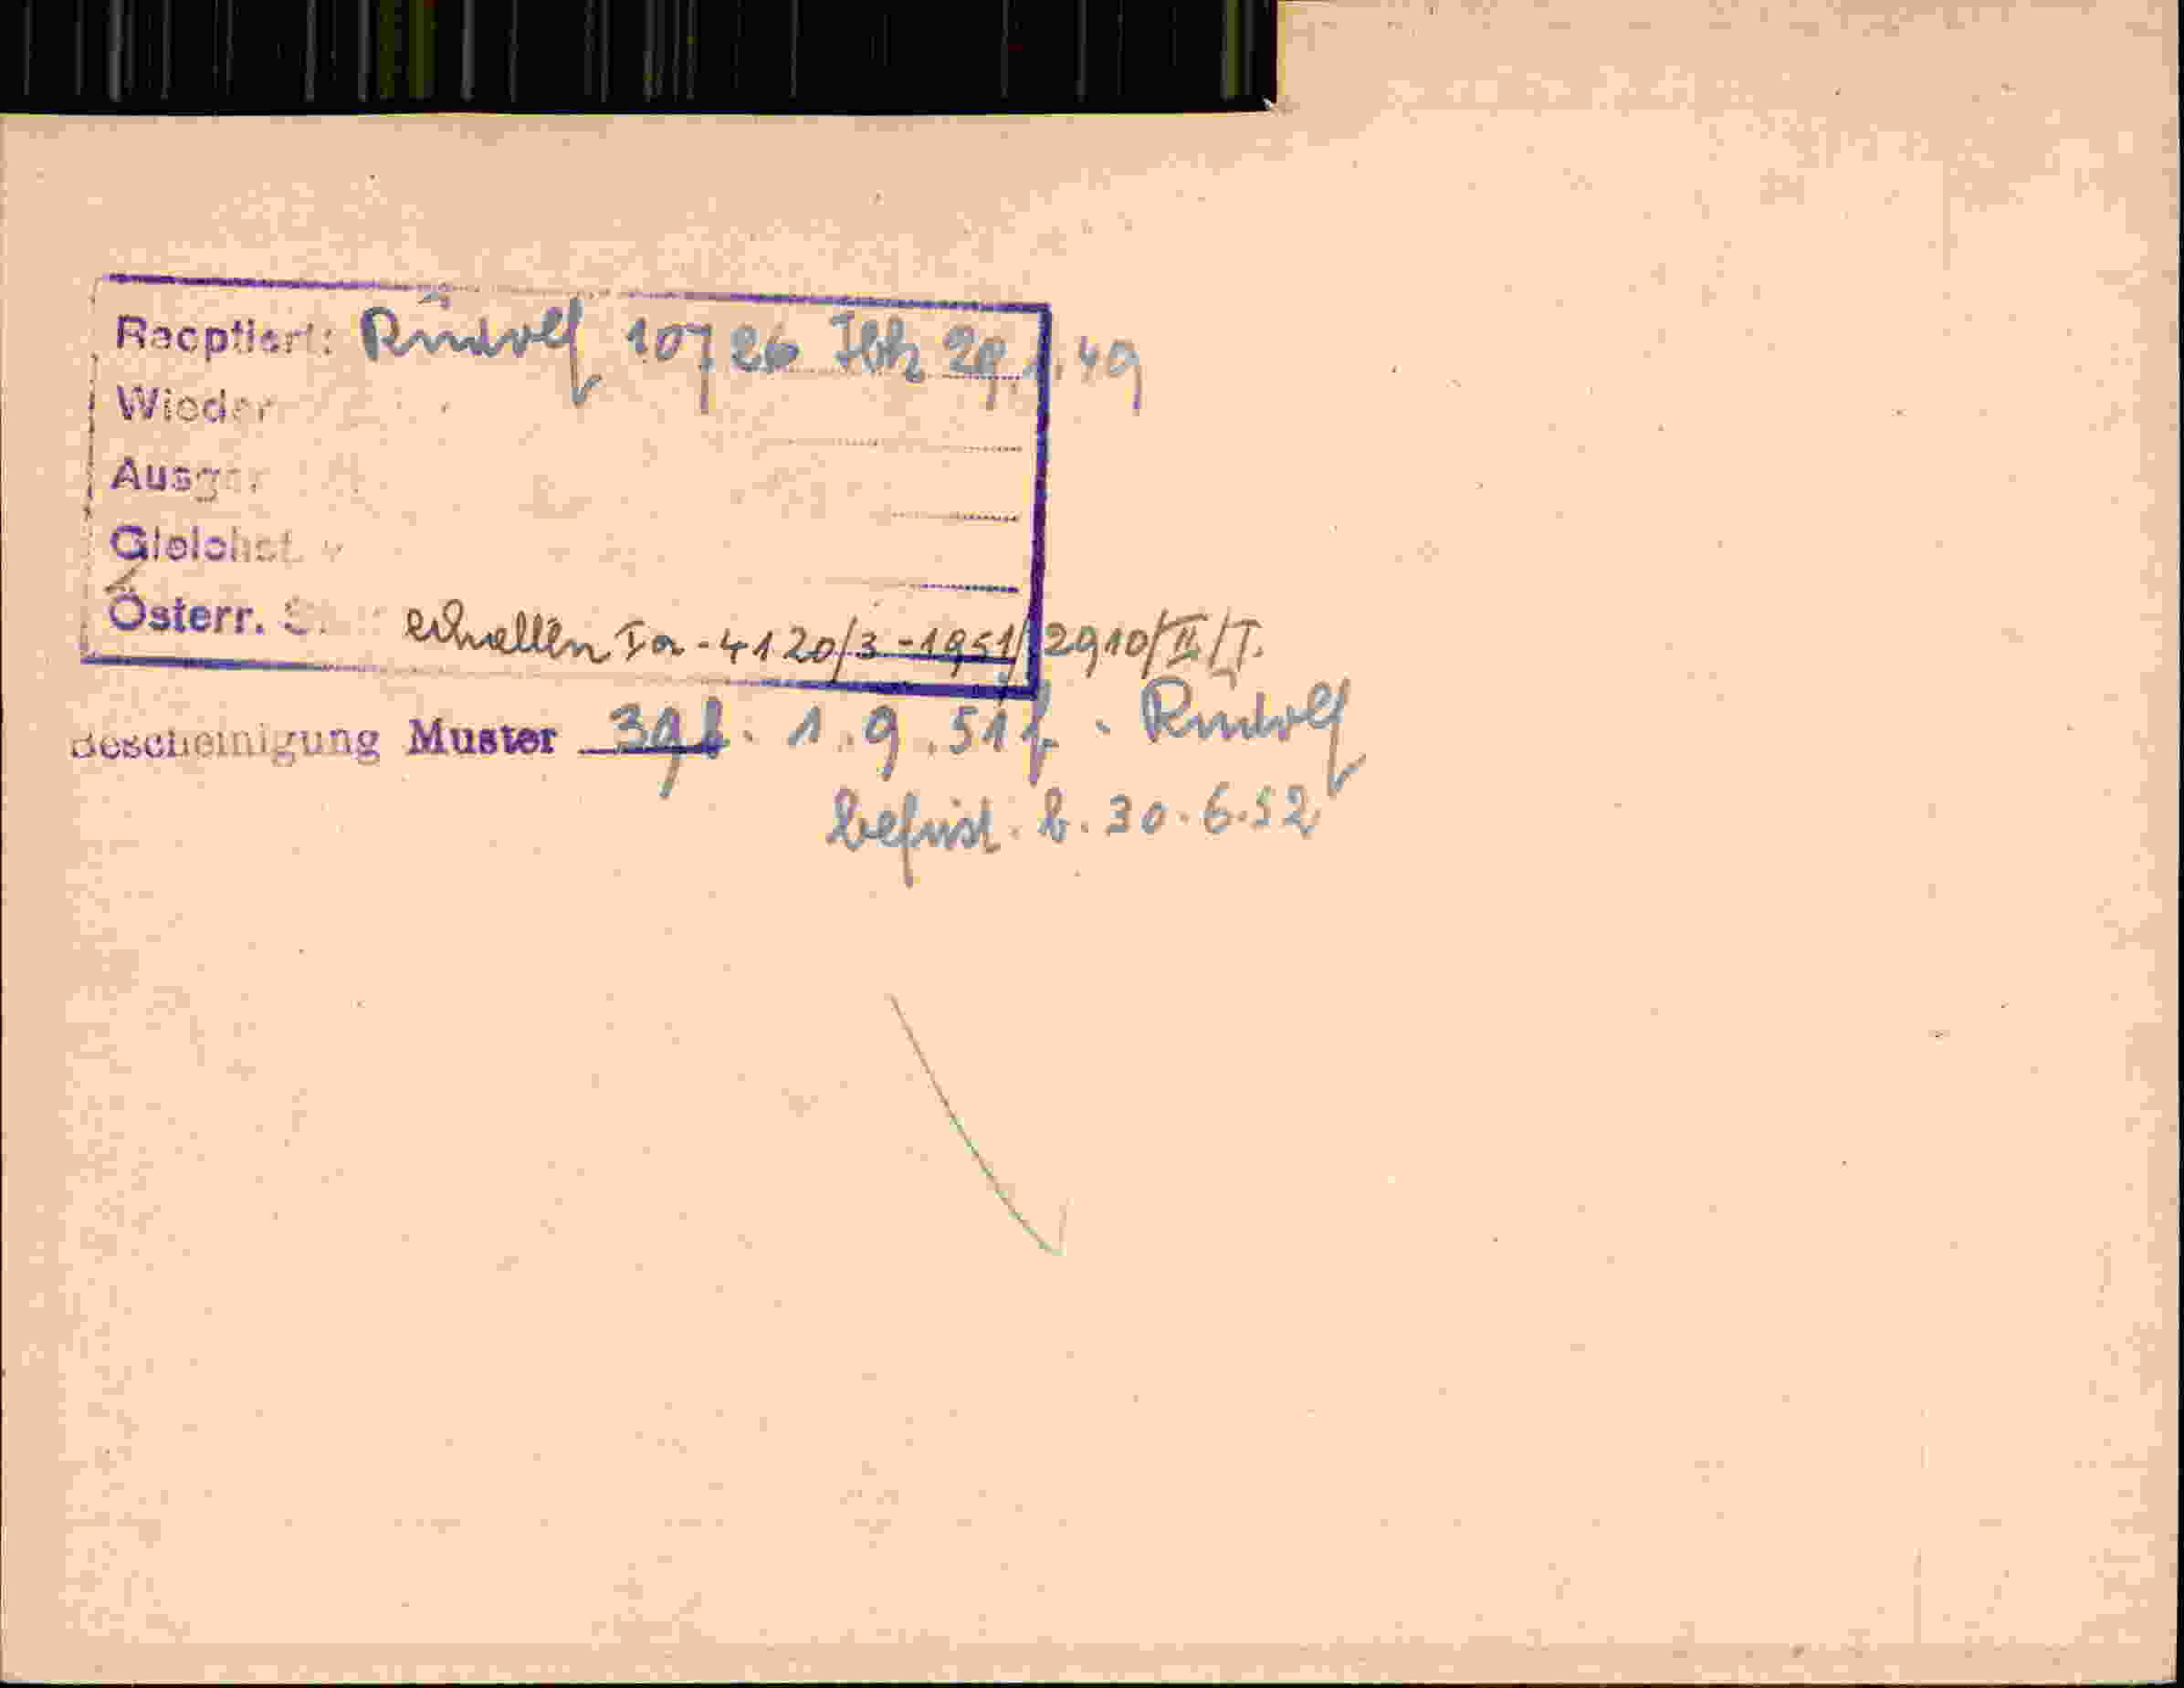 Racptiert: Rudolf 10726 Ibk 29.1.49
Wieder
Ausge
Gleichst
Österr. S. erhallen Ia-4120/3-1951/2910/II/I.
Bescheinigung Muster 39f. 1.9.51f. Rudolf
befrist. b. 30.6.52